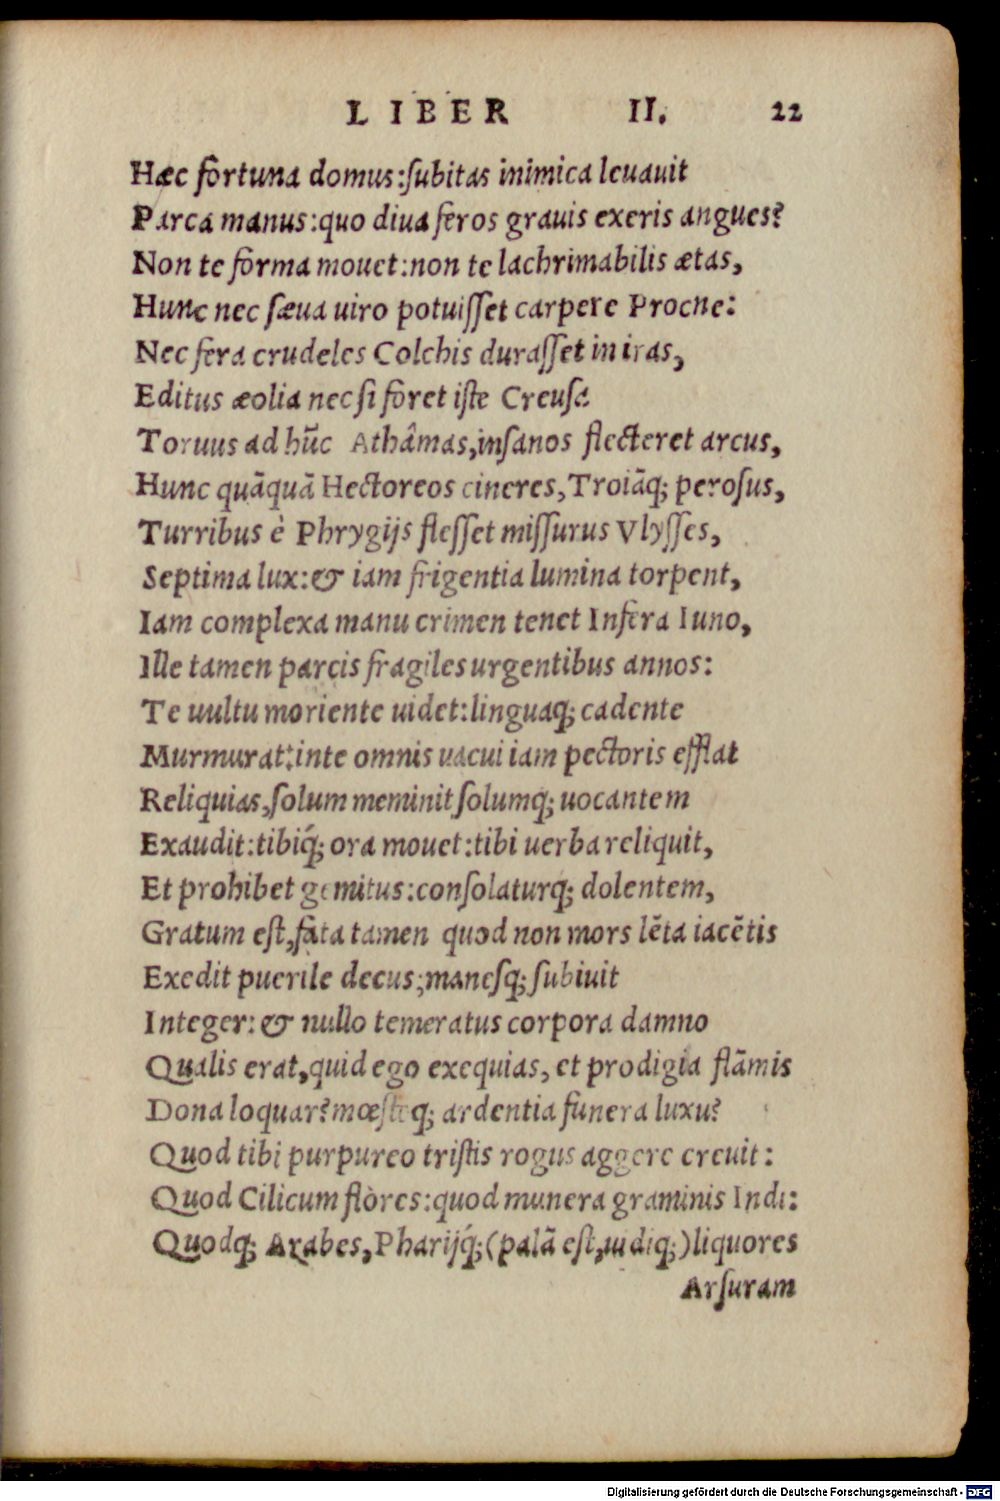 LIBER II. 22
Hæc fortuna domus:ſubitas inimica leuauit
Parca manus:quo diua feros grauis exeris angues?
Non te forma mouet:non te lachrimabilis ætas,
Hunc nec ſæua uiro potuiſſet carpere Procne:
Nec fera crudeles Colchis duraſſet in iras,
Editus æolia nec ſi foret iſte Creuſa
Toruus ad hũc Athâmas,inſanos flecteret arcus,
Hunc quãquã Hectoreos cineres,Troiãq; peroſus,
Turribus è Phrygijs fleſſet miſſurus Vlyſſes,
Septima lux:& iam frigentia lumina torpent,
Iam complexa manu crimen tenet Infera Iuno,
Ille tamen parcis fragiles urgentibus annos:
Te uultu moriente uidet:linguaq; cadente
Murmurat:inte omnis uacui iam pectoris efflat
Reliquias,ſolum meminit ſolumq; uocantem
Exaudit:tibiq́; ora mouet:tibi uerba reliquit,
Et prohibet gemitus:conſolaturq; dolentem,
Gratum eſt,fata tamen quod non mors lẽta iacẽtis
Exedit puerile decus;maneſq; ſubiuit
Integer:& nullo temeratus corpora damno
Qualis erat,quid ego exequias, et prodigia flãmis
Dona loquar?mœſteq; ardentia funera luxu?
Quod tibi purpureo triſtis rogus aggere creuit:
Quod Cilicum flòres:quod munera graminis Indi:
Quodq; Arabes,Pharijq́;(palã eſt,uidiq;)liquores
Arſuram
Digitalisierung gefördert durch die Deutsche Forschungsgemeinschaft - DFG